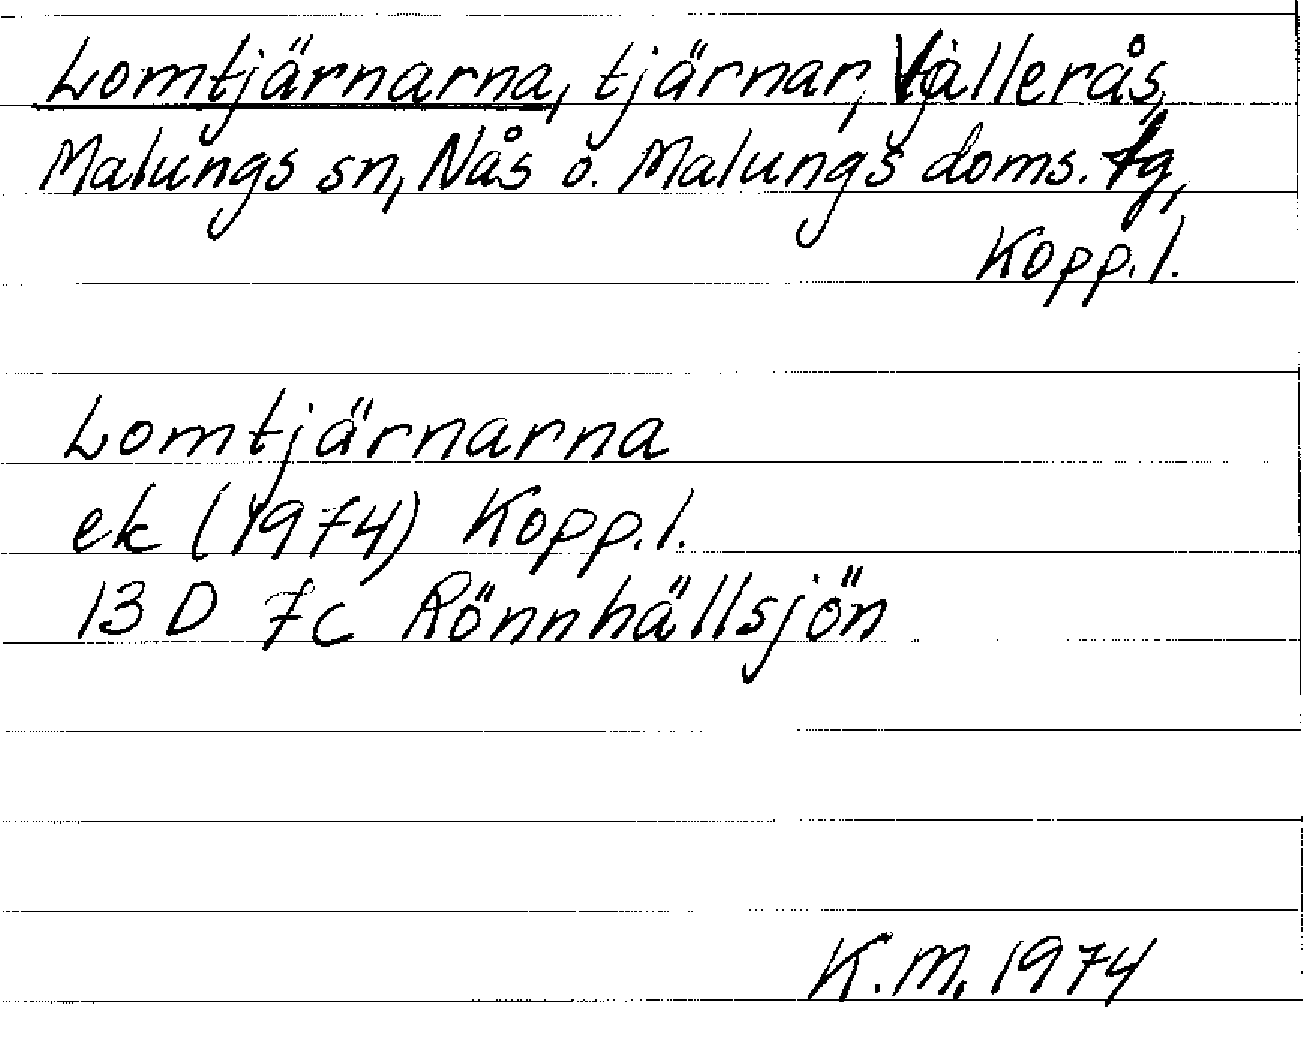 Lomtjärnarna, tjärnar, Vallerås,
Malungs sn, Nås o. Malungs doms. tg,
Kopp. l.
Lomtjärnarna
ek (1974) Kopp. l.
13 D 7c Rönnhällsjön
K.M. 1974